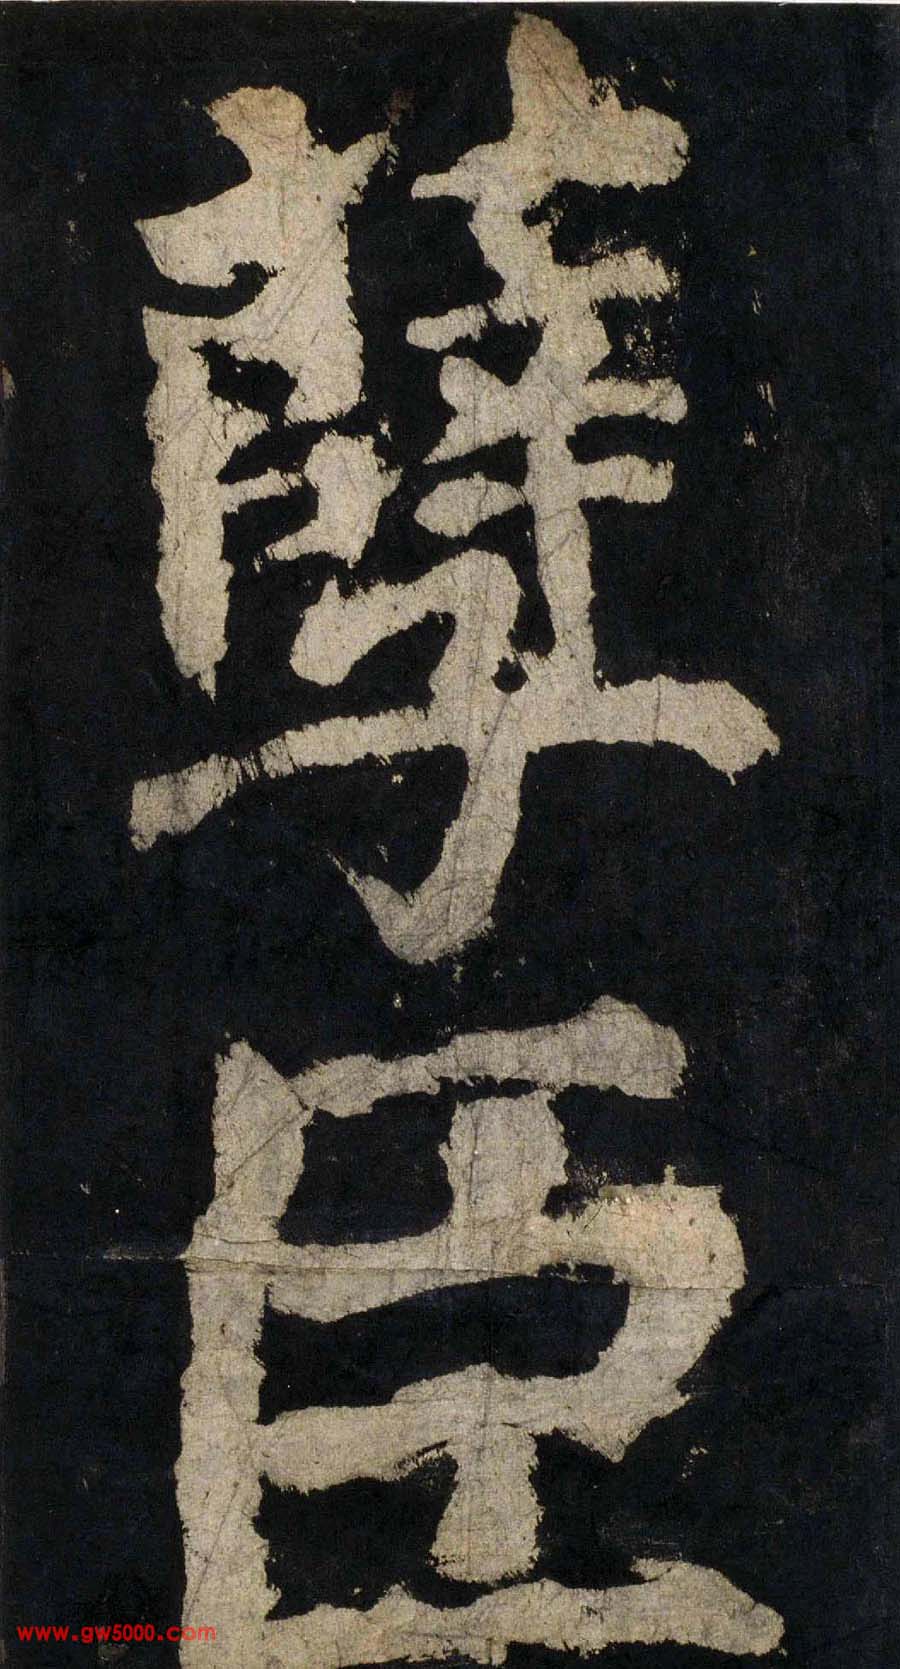 孽臣
www.gw5000.com